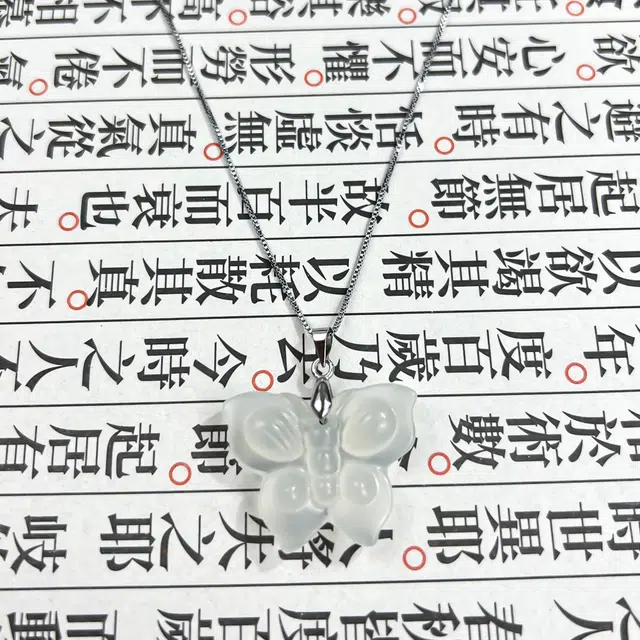 春秋皆度百歲而
時世異耶。人將失之耶。岐
於術數。節。起居有
年。度百歲乃去。今時之人
欲竭其精以耗散其真。不
起居無節。故半百而衰也。夫
避之有時。恬惔虛無。真氣從之
欲。心安而不懼。形勞而不倦。氣